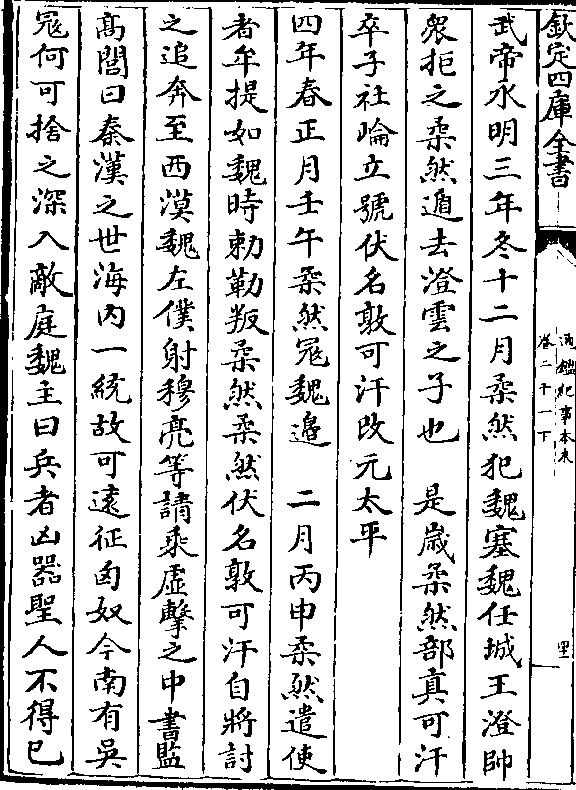 欽定四庫全書
通鑑紀事本末
卷二十一下
武帝永明三年冬十二月柔然犯魏塞魏任城王澄帥
衆拒之柔然遁去澄雲之子也　是歲柔然部真可汗
卒子社崘立號伏名敦可汗改元太平
四年春正月壬午柔然冦魏邉　二月丙申柔然遣使
者牟提如魏時勅勒叛柔然柔然伏名敦可汗自將討
之追奔至西漠魏左僕射穆亮等請乘虛擊之中書監
髙閭曰秦漢之世海内一統故可遠征匈奴今南有吳
冦何可捨之深入敵庭魏主曰兵者凶器聖人不得已